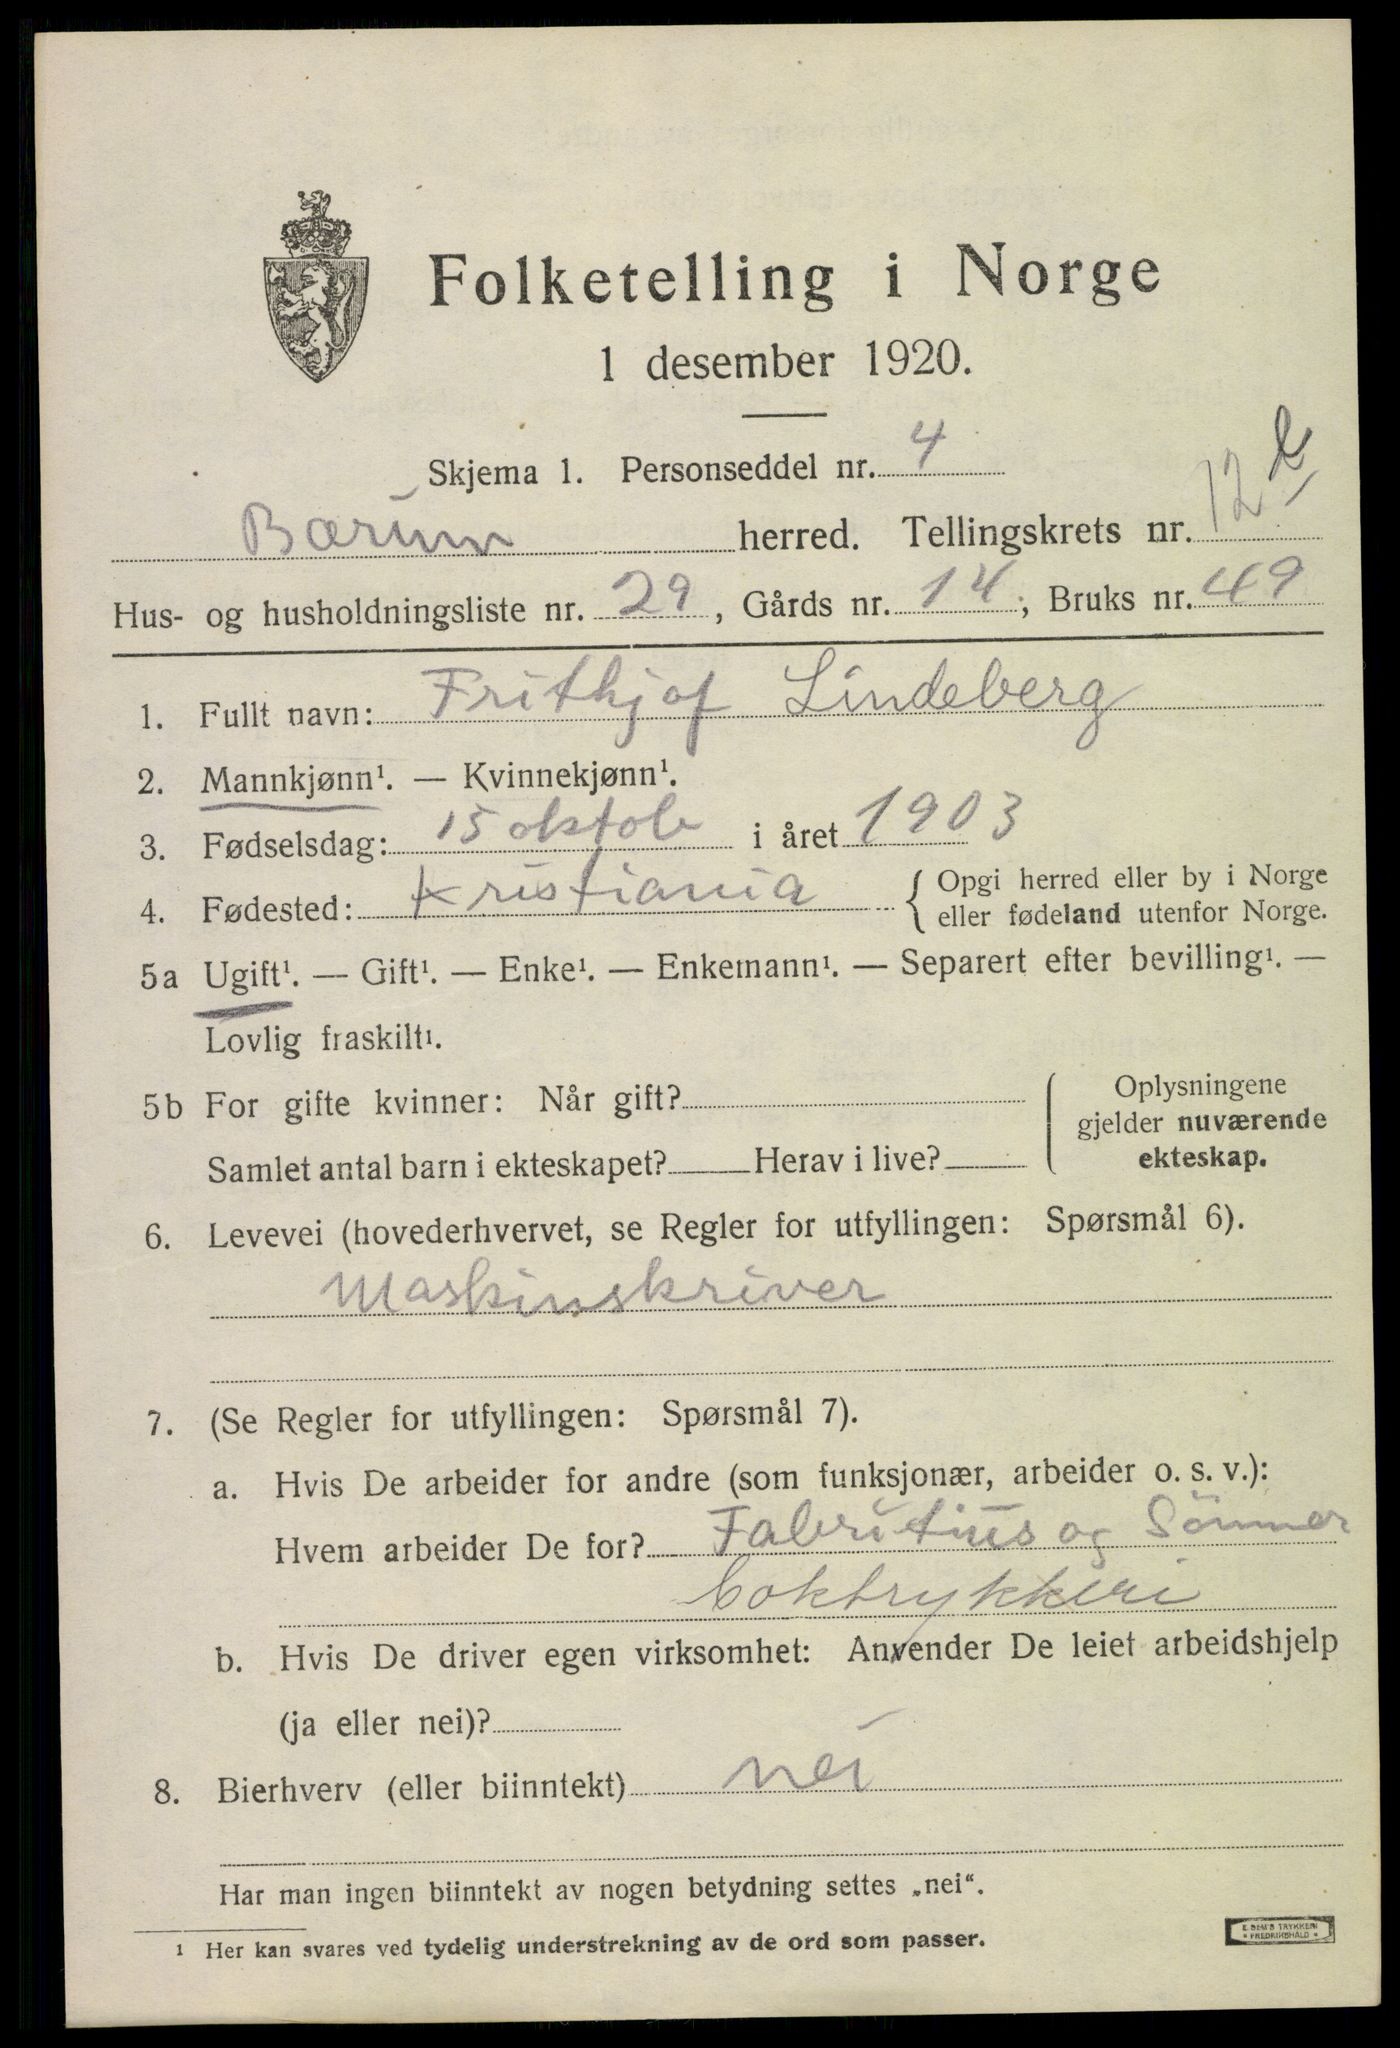 Folketelling i Norge
1 desember 1920.
Skjema 1. Personseddel nr. 4
Bærum herred. Tellingskrets nr. 12 b
Hus- og husholdningsliste nr. 29, Gårds nr. 14; Bruks nr. 49
1. Fullt navn: Frithjof Lindeberg
2. Mannkjønn¹. — Kvinnekjønn¹.
3. Fødselsdag: 15 oktob i året 1903
4. Fødested: Kristiania { Opgi herred eller by i Norge
eller fødeland utenfor Norge.
5a Ugift¹. — Gift¹. — Enke¹. — Enkemann¹. — Separert efter bevilling¹. —
Lovlig fraskilt¹.
5b For gifte kvinner: Når gift?
Samlet antal barn i ekteskapet? Herav i live?
Oplysningene
gjelder nuværende
ekteskap.
6. Levevei (hovederhvervet, se Regler for utfyllingen: Spørsmål 6).
Maskinskriver
7. (Se Regler for utfyllingen: Spørsmål 7).
a. Hvis De arbeider for andre (som funksjonær, arbeider o. s. v.):
Hvem arbeider De for? Fabritius og Sönner
boktrykkeri
b. Hvis De driver egen virksomhet: Anvender De leiet arbeidshjelp
(ja eller nei)?
8. Bierhverv (eller biinntekt) nei
Har man ingen biinntekt av nogen betydning settes „nei“.
¹ Her kan svares ved tydelig understrekning av de ord som passer.
E. SEM'S TRYKKERI
* FREDRIKSHALD *